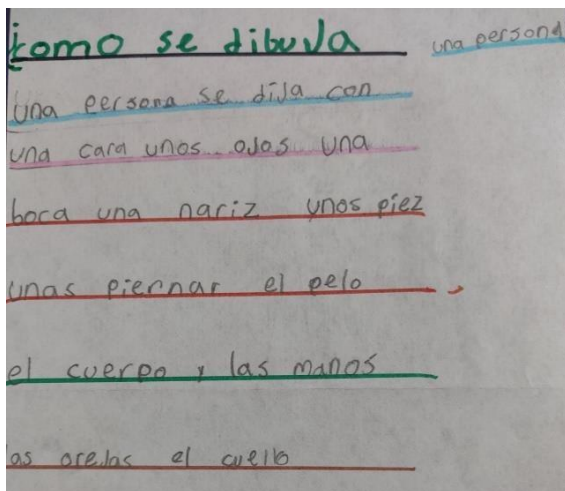 como se dibuJa una persona
una persona se diJa con
una cara unos oJos una
boca una nariz unos piez
unas piernar el pelo
el cuerpo y las manos
as oreJas el cuello